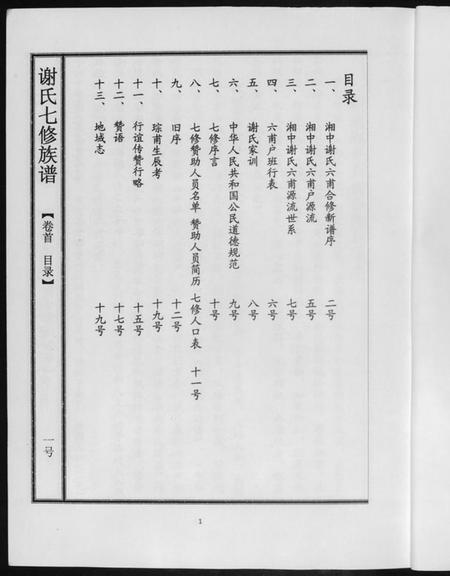 目录
一、湘中谢氏六甫合修新谱序 二号
二、湘中谢氏六甫户源流 五号
三、湘中谢氏六甫源流世系 七号
四、六甫户班行表 六号
五、谢氏家训 八号
六、中华人民共和国公民道德规范 九号
七、七修序言 十号
八、七修赞助人员名单 赞助人员简历 七修人口表 十一号
九、旧序 十二号
十、琮甫生辰考 十九号
十一、行谊传赞行略 十五号
十二、赞语 十七号
十三、地域志 十九号
谢氏七修族谱
【卷首 目录】
一号
1